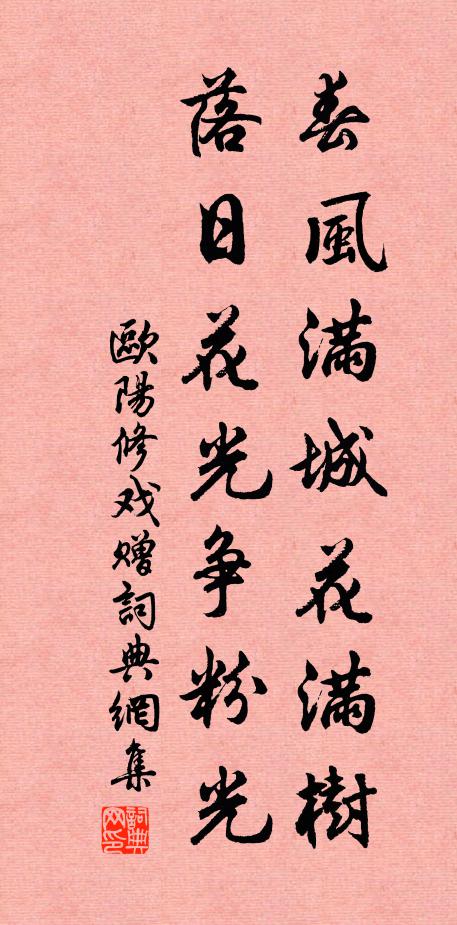 春風滿城花滿樹
落日花光争粉光
歐陽修戏贈詞典網集
詞典网印